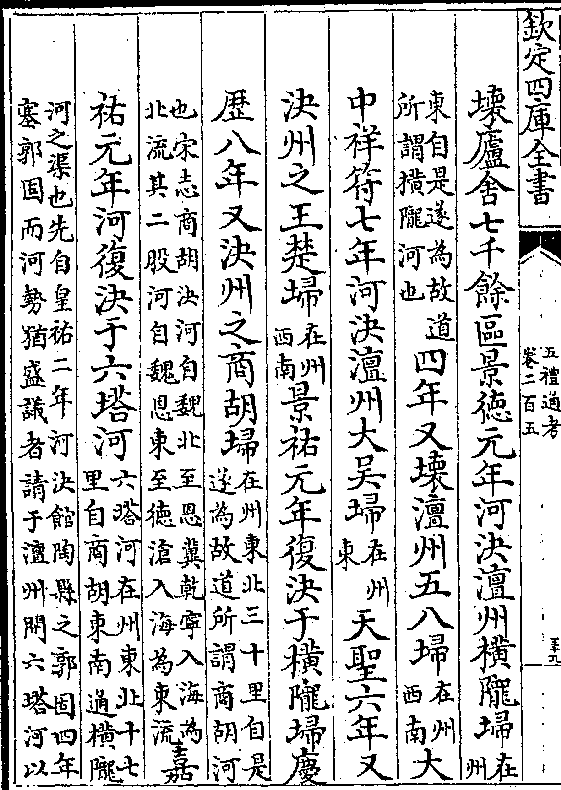 欽定四庫全書
五禮通考
卷二百五
壞廬舍七千餘區景德元年河決澶州橫隴埽在州
東自是遂為故道所謂橫隴河也四年又壞澶州五八埽在州西南大
中祥符七年河決澶州大吳埽在州東天聖六年又
決州之王楚埽在州西南景祐元年復決于橫隴埽慶
歴八年又決州之商胡埽在州東北三十里自是遂為故道所謂商胡河
也宋志商胡決河自魏北至恩冀乾寧入海為北流其二股河自魏恩東至德滄入海為東流嘉
祐元年河復決于六塔河六塔河在州東北十七里自商胡東南通橫隴
河之渠也先自皇祐二年河決館陶縣之郭固四年塞郭固而河勢猶盛議者請于澶州開六塔河以